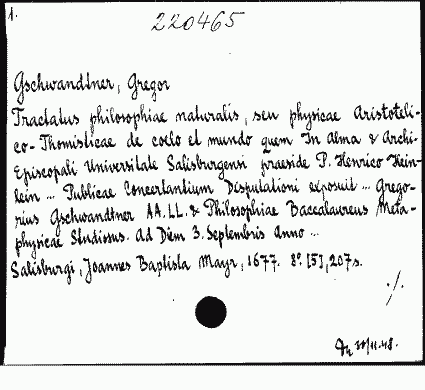 1.
220465
Gschwandtner, Gregor
Tractatus philosophiae naturalis, seu physicae Aristoteli-
co-Thomisticae de coelo et mundo quem In Alma & Archi-
Episcopali Universitate Salisburgensi praeside P. Henrico Hein-
lein ... Publicae Concertantium Disputationi exposuit ... Grego-
rius Gschwandtner AA.LL. & Philosophiae Baccalaureus Meta-
physicae Studiosus. Ad Diem 3. Septembris Anno ...
Salisburgi, Joannes Baptista Mayr, 1677. 8° [5], 207 s.
./.